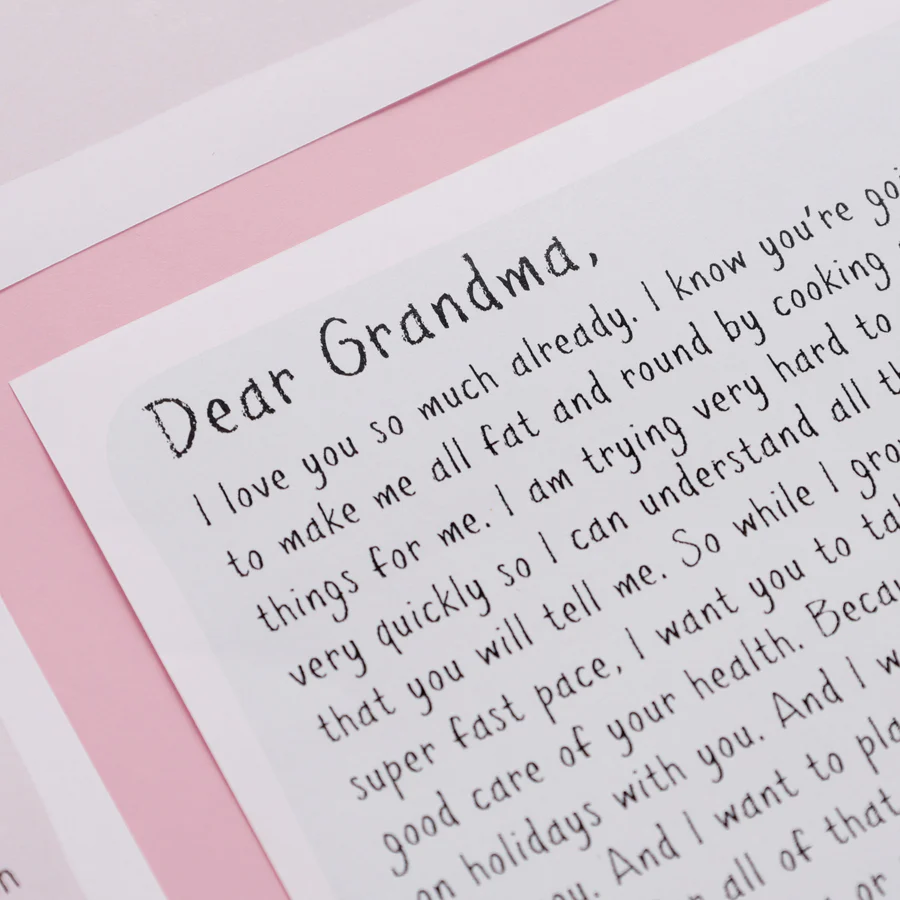 Dear Grandma,
I love you so much already. I know you're
to make me all fat and round by cooking
things for me. I am trying very hard to
very quickly so I can understand all
that you will tell me. So while I
super fast pace, I want you to
good care of your health.
on holidays with you. And I
And I want to
all of that
or